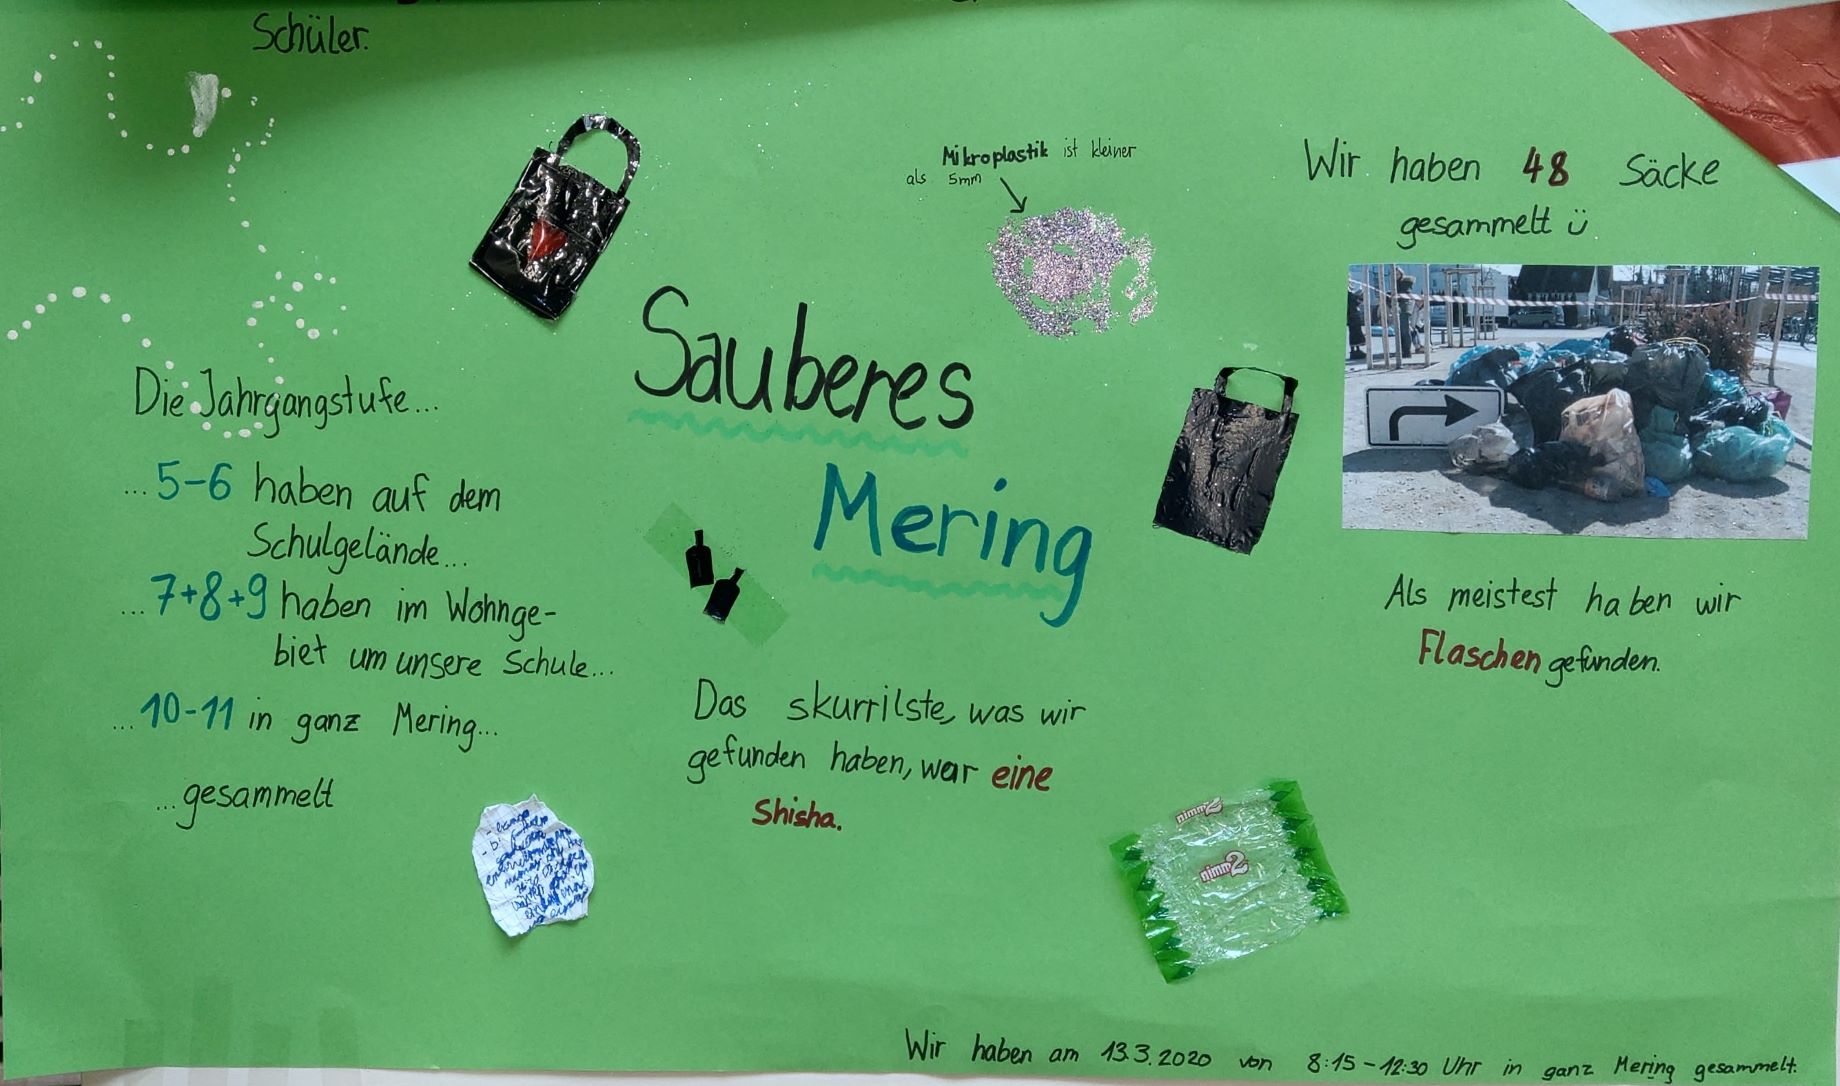 Schüler.
Mikroplastik ist kleiner
als 5mm
Wir haben 48 Säcke
gesammelt ü
Sauberes
Mering
Die Jahrgangstufe...
...5-6 haben auf dem
Schulgelände...
...7+8+9 haben im Wohnge-
biet um unsere Schule...
...10-11 in ganz Mering...
...gesammelt
Als meistest haben wir
Flaschen gefunden.
Das skurrilste, was wir
gefunden haben, war eine
Shisha.
nimm2
nimm2
Wir haben am 13.3.2020 von 8:15-12:30 Uhr in ganz Mering gesammelt.